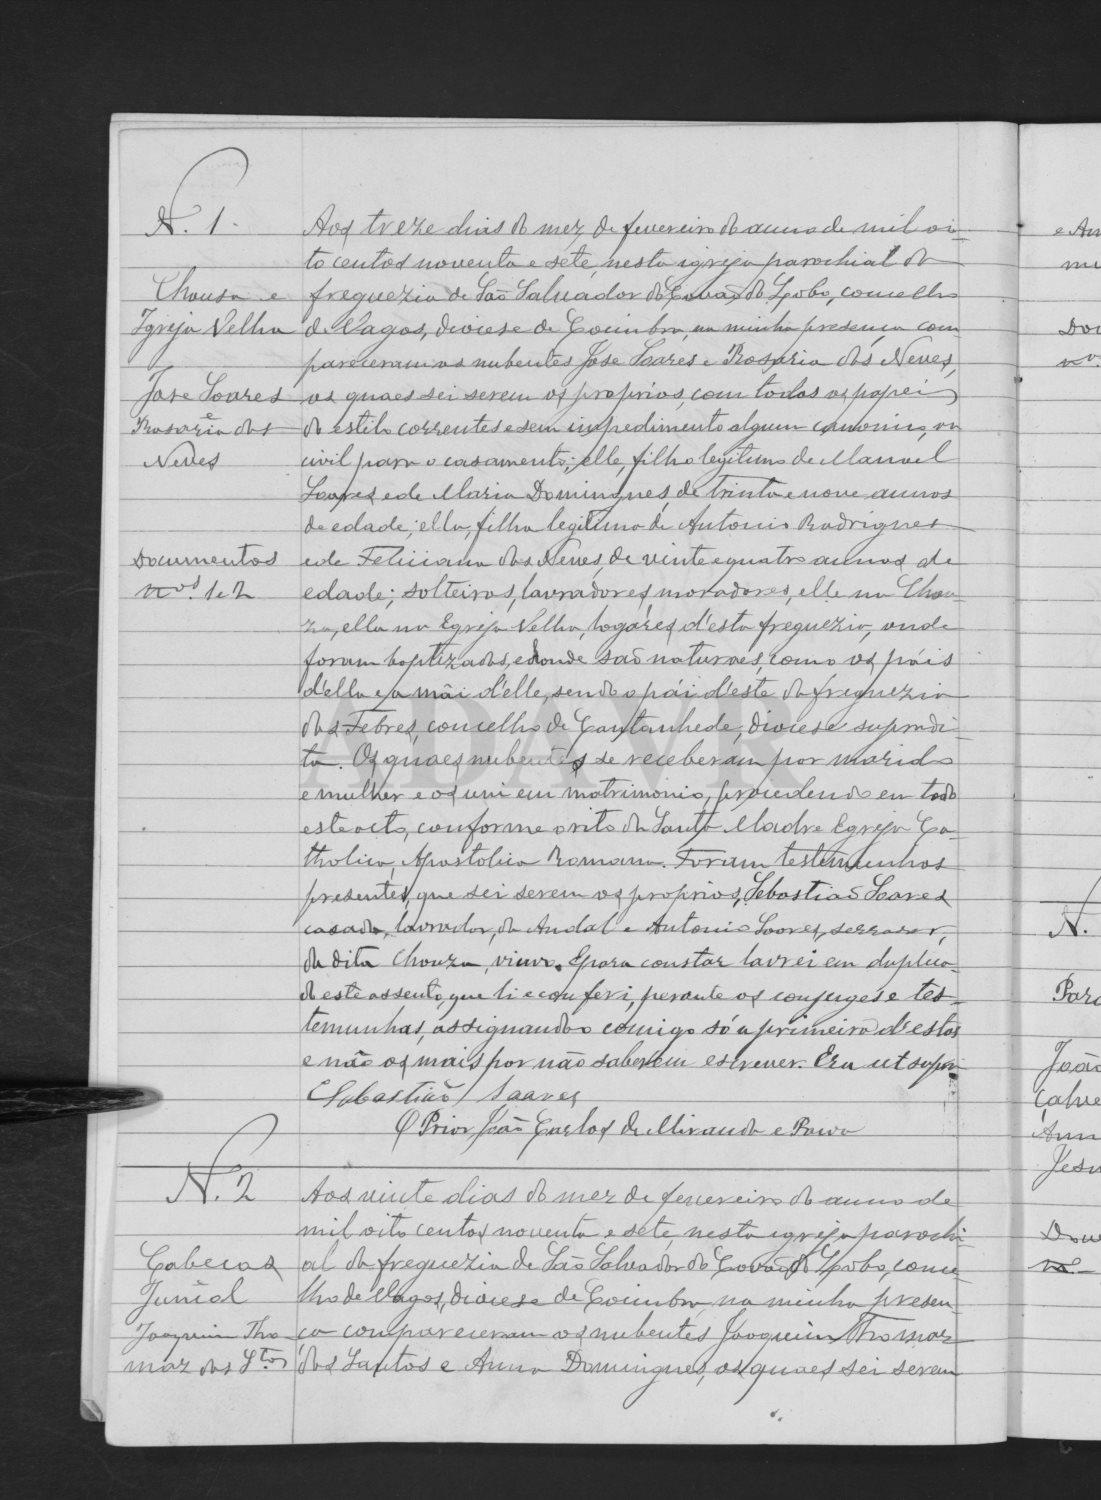 N. 1.
Chousa e
Igreja Velha
Jose Soares
e
Rosaria das
Neves
Documentos
nos. 1 e 2
Aos treze dias do mez de fevereiro do anno de mil oi-
to centos noventa e sete, nesta igreja parochial da
freguezia de São Salvador do Covão do Lobo, concelho
de Vagos, diocese de Coimbra, na minha presença com-
pareceram os nubentes Jose Soares e Rosaria das Neves,
os quaes sei serem os proprios, com todos os papeis
do estilo correntes e sem impedimento algum canonico, ou
civil para o casamento; elle, filho legitimo de Manuel
Soares e de Maria Domingues, de trinta e nove annos
de edade; ella, filha legitima de Antonio Rodrigues
e de Feliciana das Neves, de vinte e quatro annos de
edade; solteiros, lavradores, moradores, elle na Chou-
za, ella na Egreja Velha, logares d'esta freguezia, onde
foram baptizados, e donde são naturaes, como os páis
d'ella e a mãi d'elle, sendo o pái d'este da freguezia
das Febres, concelho de Cantanhede, diocese supradi-
ta. Os quaes nubentes se receberam por marido
e mulher e os uni em matrimonio, procedendo em todo
este acto, conforme o rito da Santa Madre Egreja Ca-
tholica, Apostolica Romana. Foram testemunhas
presentes, que sei serem os proprios, Sebastião Soares
casado, lavrador, da Andal e Antonio Soares, serrador,
da dita Chouza, viuvo. E para constar lavrei em duplica-
do este assento, que li e conferi, perante os conjuges e tes-
temunhas, assignando comigo só a primeira d'estas
e não os mais por não saberem escrever. Era ut supra
Sebastião Soares
O Prior João Carlos de Miranda e Paiva
N. 2
Cabecas
Junçal
Joaquim Tho-
maz dos Stos
Aos vinte dias do mez de fevereiro do anno de
mil oito centos noventa e sete, nesta igreja parochi-
al da freguezia de São Salvador do Covão do Lobo, conce-
lho de Vagos, diocese de Coimbra, na minha presen-
ça compareceram os nubentes Joaquim Thomaz
dos Santos e Anna Domingues, os quaes sei serem
ADAVR
N.